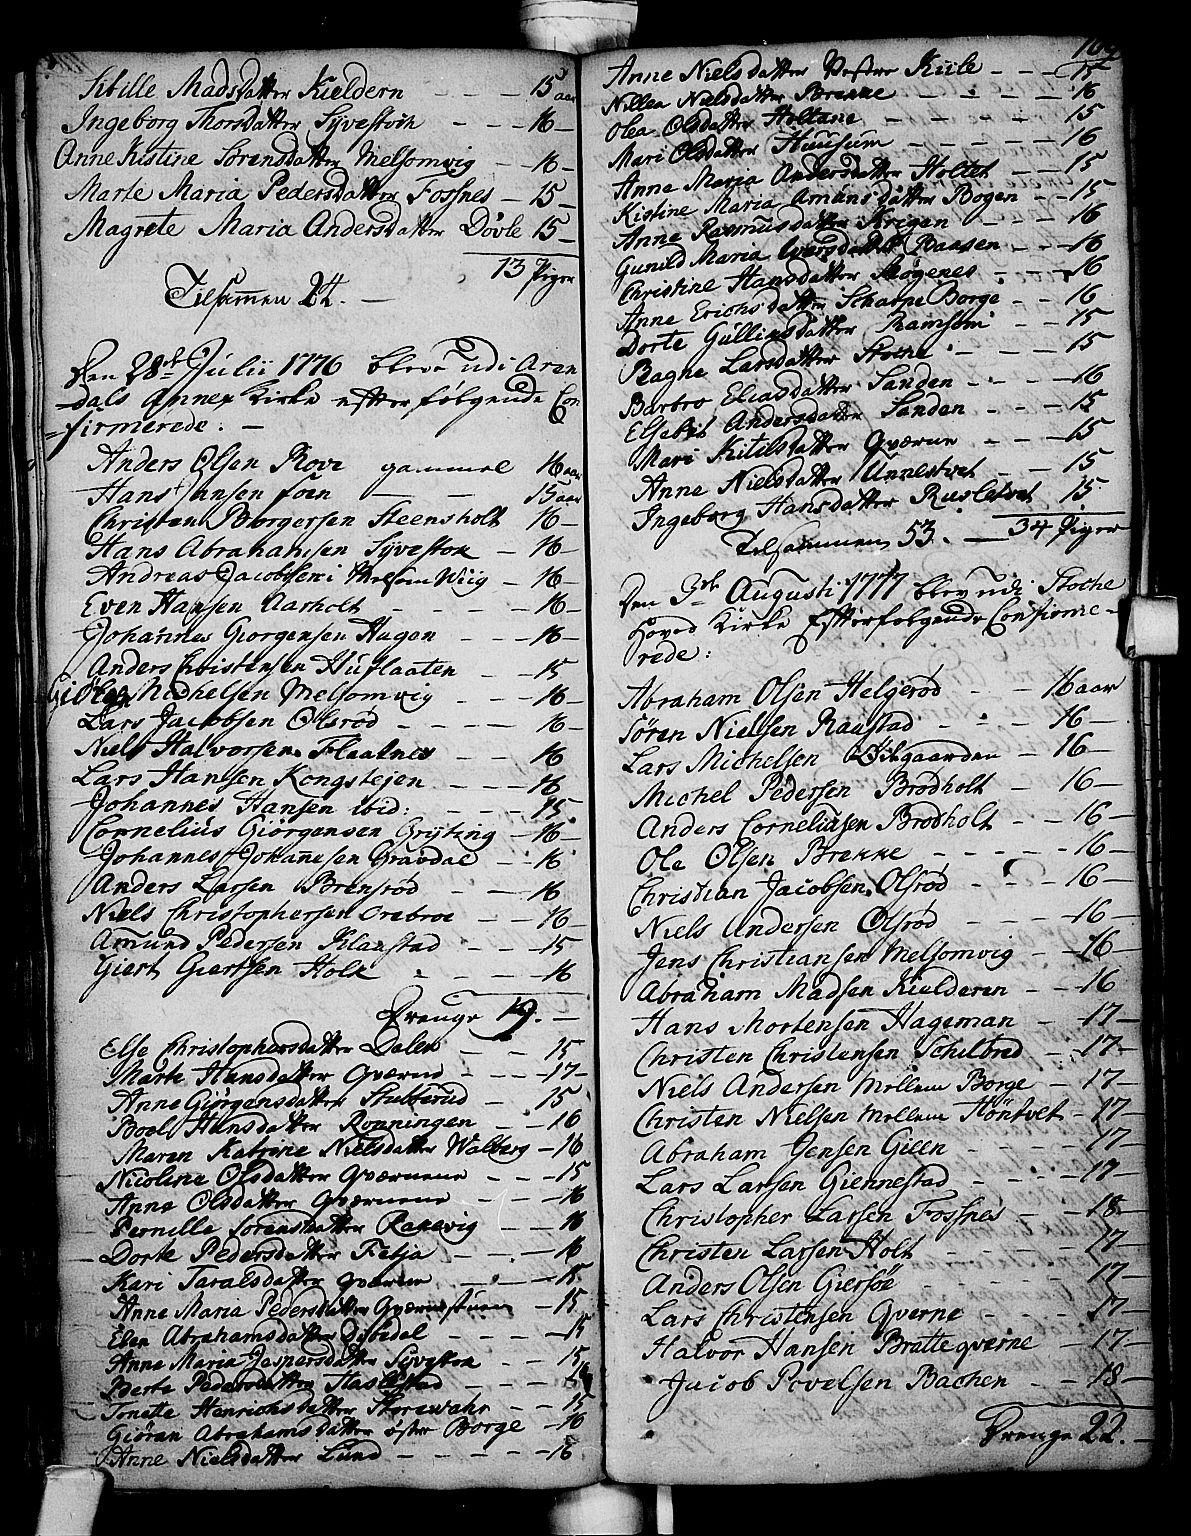 Sibille Madsdatter Kieldern - - - 15 aar
Ingeborg Thorsdatter Syvestoch - - - 16 -
Anne Kistine Sørensdatter Melsomvig - - 16 -
Marte Maria Pedersdatter Fossnes - 15 -
Magrete Maria Andersdatter Døvle 15 -
13 Piger
Tilsamen 24. -
Den 28de Julii 1776 bleve udi Aren
dals Annex Kirke efterfølgende Con
firmerede. -
Anders Olsen Rove gammel 16 aar
Hans Jansen Foen - - 15 aar
Christen Borgersen Steensholt 16 -
Hans Abrahamsen Syvestok - 16 -
Andreas Jacobsen i MelsomWiig - 16 -
Even Hansen Aarholt - - - - 16 -
Johannes Giorgensen Hagen - - - 16 -
Anders Christensen Huflaaten - - 15
Michelsen Melsomvig - - - 16 -
Lars Jacobsen Olsrod - - - - 16 -
Niels Halvorsen Flaatnes - - 16
Lars Hansen Kongstejen - - - 16
Johannes Hansen ibid: - - - 15
Cornelius Giörgensen Gryting - 16 -
Johannes Johannesen Gravdal - - 16
Anders Larsen Brensrød - - - 16
Niels Christophersen Orebroe - - - 16 -
Amund Pedersen Klaastad - - - 15
Giert Giertsen Holt - - - 16
Drenge 19. -
Else Christophersdatter Dalen - - - 15
Marte Hansdatter Qværne - - - - 17 -
Anne Giörgensdatter Stulterud - 15
Boel Hansdatter Rønningen - - 16
Maren Katrine Nielsdatter Walberg - 16
Nicoline Olsdatter Qværnene - - - 15
Anne Olsdatter Qværnene - - - 16
Pernille Sørensdatter Rakevig - - 16
Dorte Pedersdatter Fetja - - - - 16
Kari Taralsdatter Qværne - - - 15
Anne Maria Pedersdatter Qværnstuen - 15
Elen Abrahamsdatter Dybedal - - - - 15
Anne Maria Jespersdatter Syvestok - - 15
Berte Pedersdatter Haslestad - - - -
Tonette Henrichsdatter Storewahr - - 15
Giøran Abrahamsdatter øster Borge - 16
Anne Nielsdatter Lund - - - - 16
Anne Nielsdatter Vestre Kiile - - - 15
Nillea Nielsdatter Brekke - - - 16
Olea Olsdatter Holtane - - - - 15
Mari Olsdatter Huusum - - - - 16
Anne Maria Andersdatter Holtet - - 15
Kistine Maria Amundsdatter Bogen - - 15
Anne Rasmusdatter Krigen - - - 16
Gunild Maria Iversdatter Baasen - - - 16
Christine Hansdatter Møgenes - - - 16
Anne Erichsdatter Scharpe Borge - - 16
Dorte Gullixsdatter Ramsum - - 15
Ragne Larsdatter Stoche - - - - 15
Barbro Eliasdatter Sanden - - - 16
Elsebet Andersdatter Sanden - - - 15
Mari Kitilsdatter Qværne - - - 15
Anne Nielsdatter Unnestvet - - - 15
Ingeborg Hansdatter Rusletvet 15
Tilsammen 53. - 34 Piger
Den 3de Augusti 1777 blev udi Stoche
Hoved Kirke Efterfølgende Confirme-
rede:
Abraham Olsen Helgerød - - - 16 aar
Søren Nielsen Raastad - - - 16 -
Lars Michelsen Østgaarden - - 16 -
Michel Pedersen Brødholt - - 16 -
Anders Corneliusen Brødholt - - 16 -
Ole Olsen Brekke - - - - - 16 -
Christian Jacobsen Olsrød - - - - 16 -
Niels Andersen Olsrød - - - - 16 -
Jens Christiansen Melsomvig - - 16 -
Abraham Madsen Kielderen - - 16
Hans Mortensen Hageman - 17 -
Christen Christensen Schilbred - - 17 -
Niels Andersen Mellem Borge - 17 -
Christen Nielsen Mellem Höntvet - 17 -
Abraham Jensen Gieen - - - - 17 -
Lars Larsen Giennestad - - - - 17 -
Christopher Larsen Fossnes - - - 18 -
Christen Larsen Holt - - - - - 17 -
Anders Olsen Giersøe - - - - 17 -
Lars Christensen Qverne - - - - 17 -
Halvor Hansen Bratteqverne - 17 -
Jacob Povelsen Bachen - - 18 -
Drenge 22. -